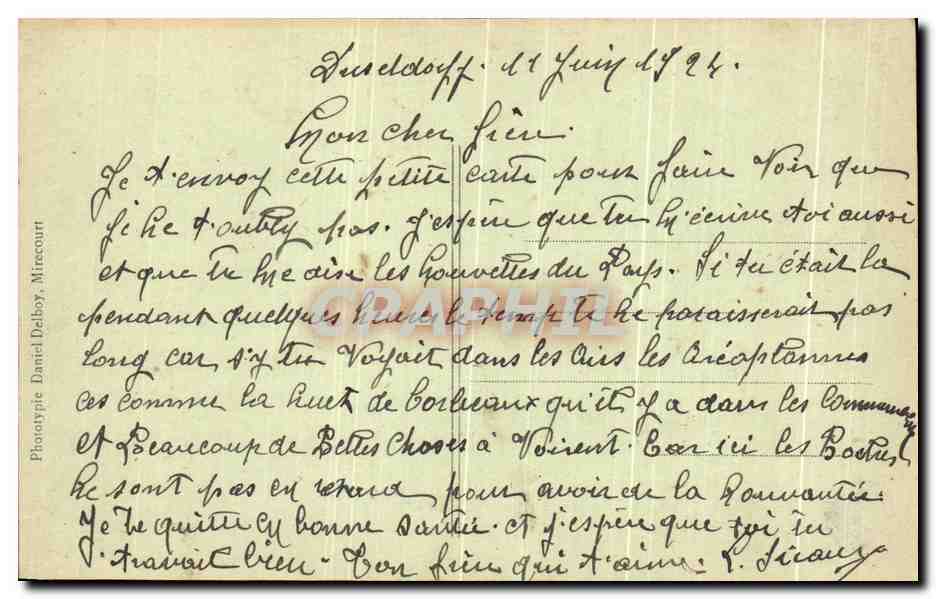 Duseldorff. 11 Juin 1924.
Mon cher frère.
Je t'envoy cette petite carte pour faire voir que
je ne t'oubly pas. J'espère que tu m'écrira toi aussi
et que tu me dise les nouvelles du Pays. Si tu était la
pendant quelques heures le temp te ne paraisserait pas
long car s'y tu voyait dans les airs les aréoplannes
ces comme la nuet de corbeaux qu'il y a dans les
et Beaucoup de Belles choses à voirent. Car ici les Boches
ne sont pas en retard pour avoir de la nouvautée.
Je te quitte en bonne santé. et j'espère que toi tu
travait bien. Ton frère qui t'aime. L.
Phototypie Daniel Delboy, Mirecourt
CPAPHIL